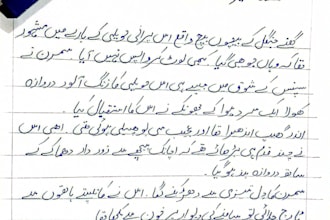 گھنے جنگل کے بیچوں بیچ واقع اس پرانی حویلی کے بارے میں مشہور
تھا کہ وہاں جو بھی گیا کبھی لوٹ کر واپس نہیں آیا۔ عمرن نے
سپنس کے شوق میں جیسے ہی اس حویلی کا زنگ آلود دروازہ
کھولا ایک سرد ہوا کے جھونکے نے اس کا استقبال کیا۔
اندر گھپ اندھیرا تھا اور عجیب سی بو پھیلی ہوئی تھی۔ ابھی اس
نے چند قدم ہی بڑھائے تھے کہ اچانک پیچھے سے زور دار دھماکے کے
ساتھ دروازہ بند ہو گیا۔
کا دل تیزی سے دھڑکنے لگا۔ اس نے کانپتے ہاتھوں سے
ٹارچ جلائی تو سامنے کی دیوار پر خون سے لکھا تھا